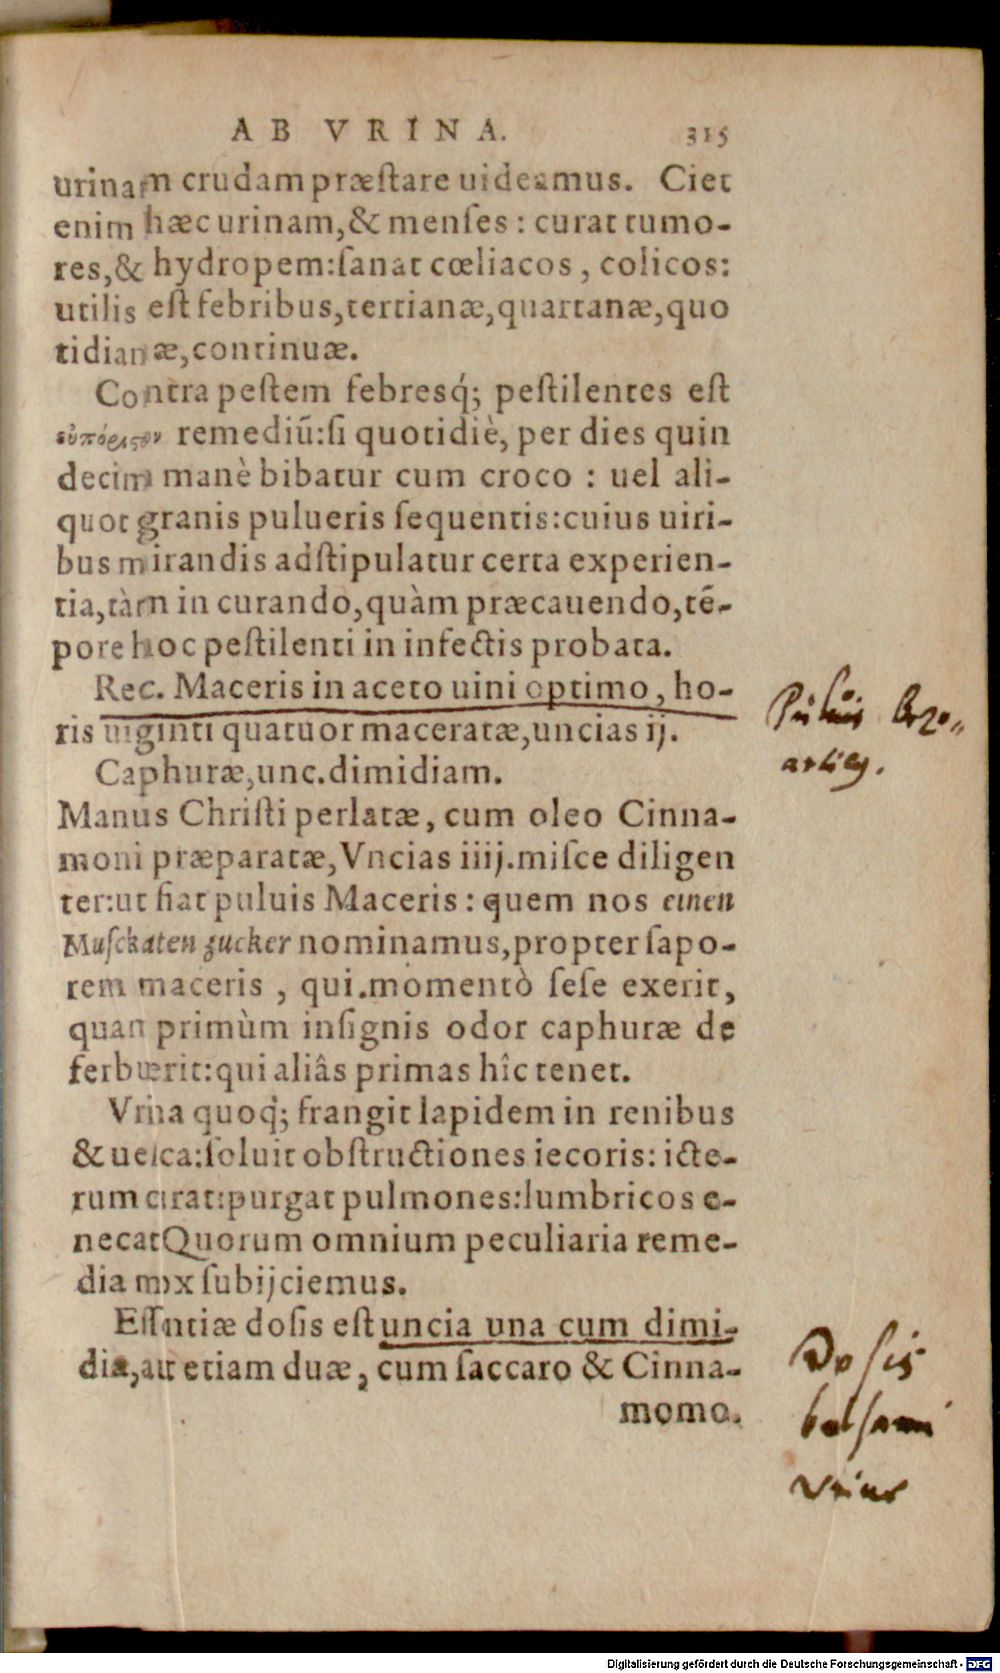 AB VRINA. 315
urinam crudam præstare uideamus. Ciet
enim hæc urinam,& menses: curat tumo-
res,& hydropem:sanat cœliacos, colicos:
utilis est febribus,tertianæ,quartanæ,quo
tidianæ,continuæ.
Contra pestem febresq́; pestilentes est
εὐπόριστον remediũ:si quotidiè, per dies quin
decim manè bibatur cum croco: uel ali-
quot granis pulueris sequentis:cuius uiri-
bus mirandis adstipulatur certa experien-
tia,tàm in curando,quàm præcauendo,tẽ-
pore hoc pestilenti in infectis probata.
Rec. Maceris in aceto uini optimo, ho-
ris uiginti quatuor maceratæ,uncias ij.
Caphuræ,unc.dimidiam.
Manus Christi perlatæ, cum oleo Cinna-
moni præparatæ,Vncias iiij.misce diligen
ter:ut fiat puluis Maceris: quem nos einen
Musckaten zucker nominamus,propter sapo-
rem maceris, qui.momentò sese exerit,
quan primùm insignis odor caphuræ de
ferbuerit:qui aliâs primas hîc tenet.
Vrina quoq́; frangit lapidem in renibus
& uesica:soluit obstructiones iecoris: icte-
rum curat:purgat pulmones:lumbricos e-
necat Quorum omnium peculiaria reme-
dia mox subijciemus.
Essentiæ dosis est uncia una cum dimi-
dia,aut etiam duæ, cum saccaro & Cinna-
momo.
Puluis
Dosis
balsami
Vrinae
Digitalisierung gefördert durch die Deutsche Forschungsgemeinschaft - DFG